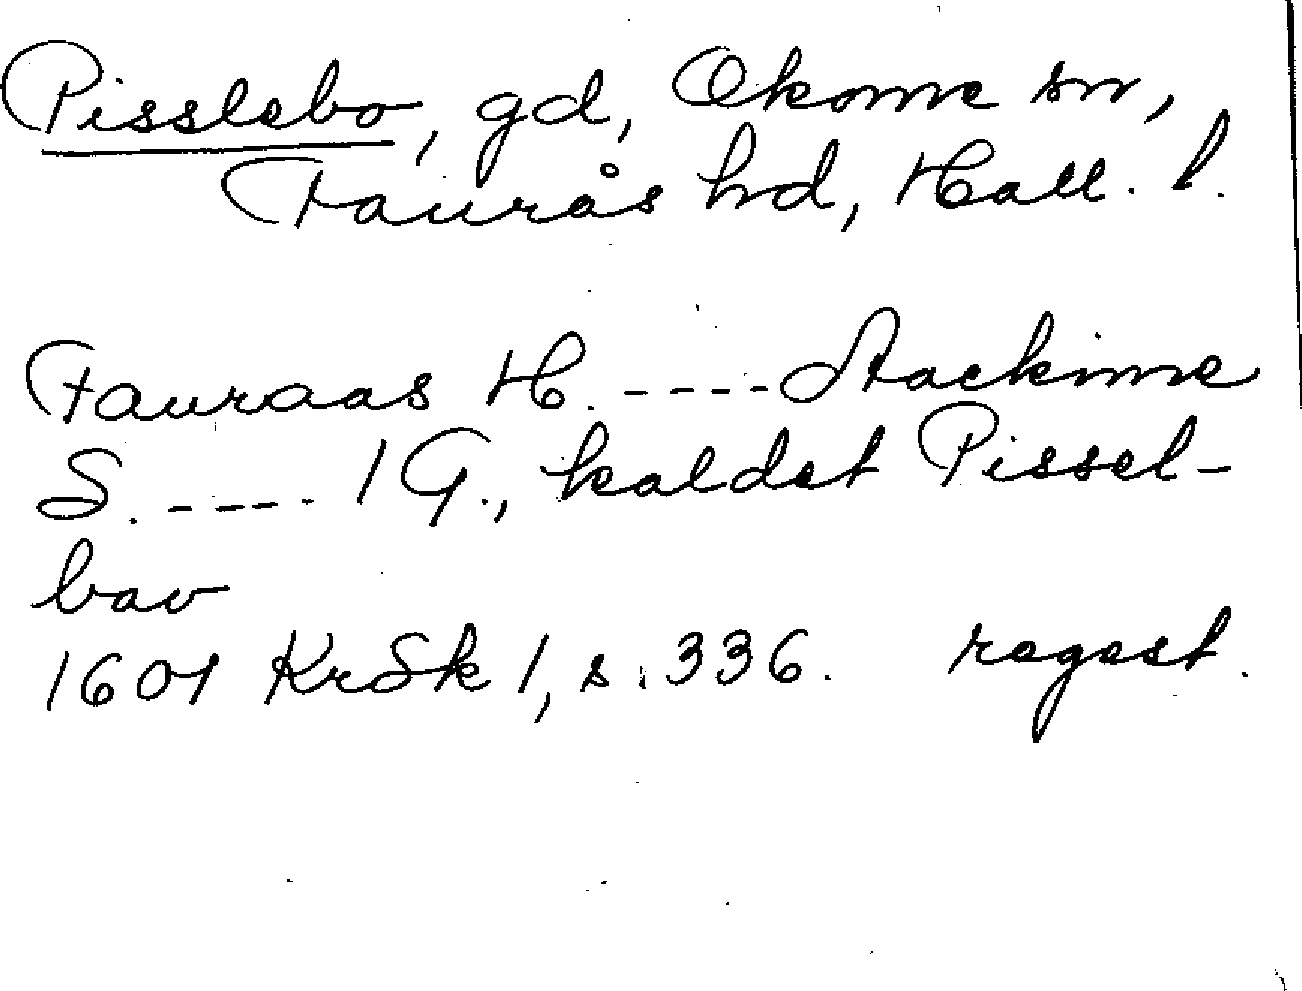 Pisslebo, gd, Okome sn,
Faurås hd, Hall. l.
Fauraas H. ---- Stackime
S. ---- 1 G., kaldet Pissel-
bav
1601 KrSk 1, s. 336. regest.